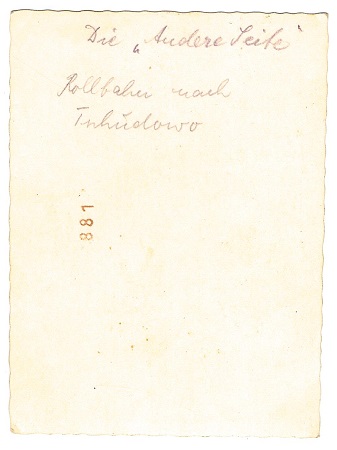 Die „Andere Seite“
Rollbahn nach
Tschudowo
881